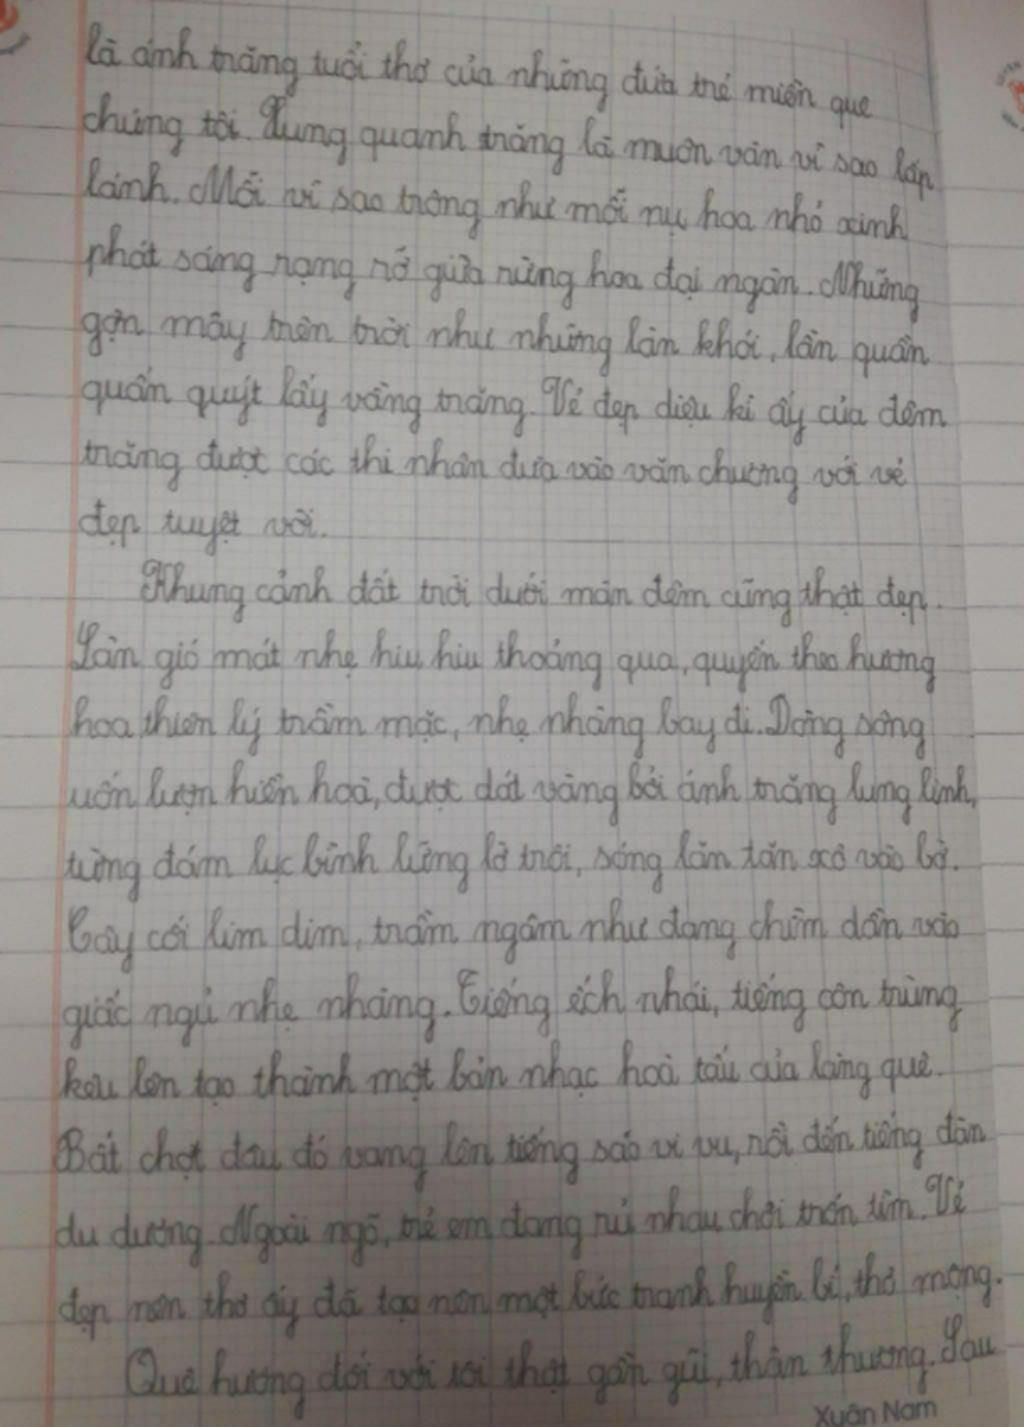 là ánh trăng tuổi thơ của những đứa trẻ miền quê
chúng tôi. Xung quanh trăng là muôn vàn vì sao lấp
lánh. Mỗi vì sao trông như mỗi nụ hoa nhỏ xinh
phát sáng rạng rỡ giữa rừng hoa đại ngàn. Những
gợn mây trên trời như những làn khói, lần quẩn
quấn quýt lấy vầng trăng. Vẻ đẹp diệu kì ấy của đêm
trăng được các thi nhân đưa vào văn chương với vẻ
đẹp tuyệt vời.
Khung cảnh đất trời dưới màn đêm cũng thật đẹp.
Làn gió mát nhẹ hiu hiu thoảng qua, quyến theo hương
hoa thiên lý trầm mặc, nhẹ nhàng bay đi. Dòng sông
uốn lượn hiền hoà, được dát vàng bởi ánh trăng lung linh,
từng đám lục bình lững lờ trôi, sóng lăn tăn xô vào bờ.
Cây cối lim dim, trầm ngâm như đang chìm dần vào
giấc ngủ nhẹ nhàng. Tiếng ếch nhái, tiếng côn trùng
kêu lên tạo thành một bản nhạc hoà tấu của làng quê.
Bất chợt đâu đó vang lên tiếng sáo vi vu, rồi đến tiếng đàn
du dương. Ngoài ngõ, trẻ em đang rủ nhau chơi trốn tìm. Vẻ
đẹp nên thơ ấy đã tạo nên một bức tranh huyền bí, thơ mộng.
Quê hương đối với tôi thật gần gũi, thân thương. Sau
Xuân Nam